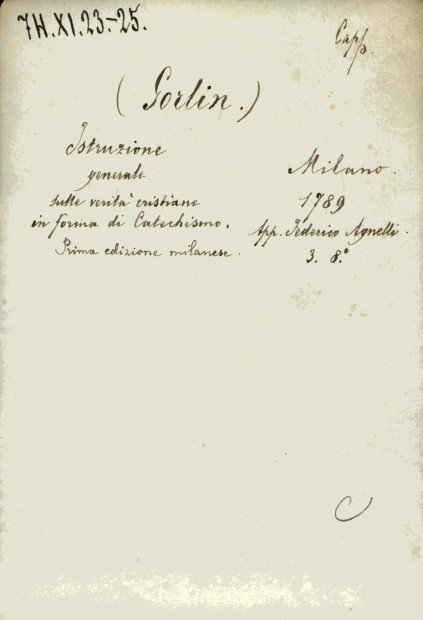 7H.XI.23.-25.
Capp.
(Gorlin.)
Istruzione
generale
sulle verità cristiane
in forma di Catechismo.
Prima edizione milanese.
Milano.
1789
App. Federico Agnelli.
3. 8.º
C